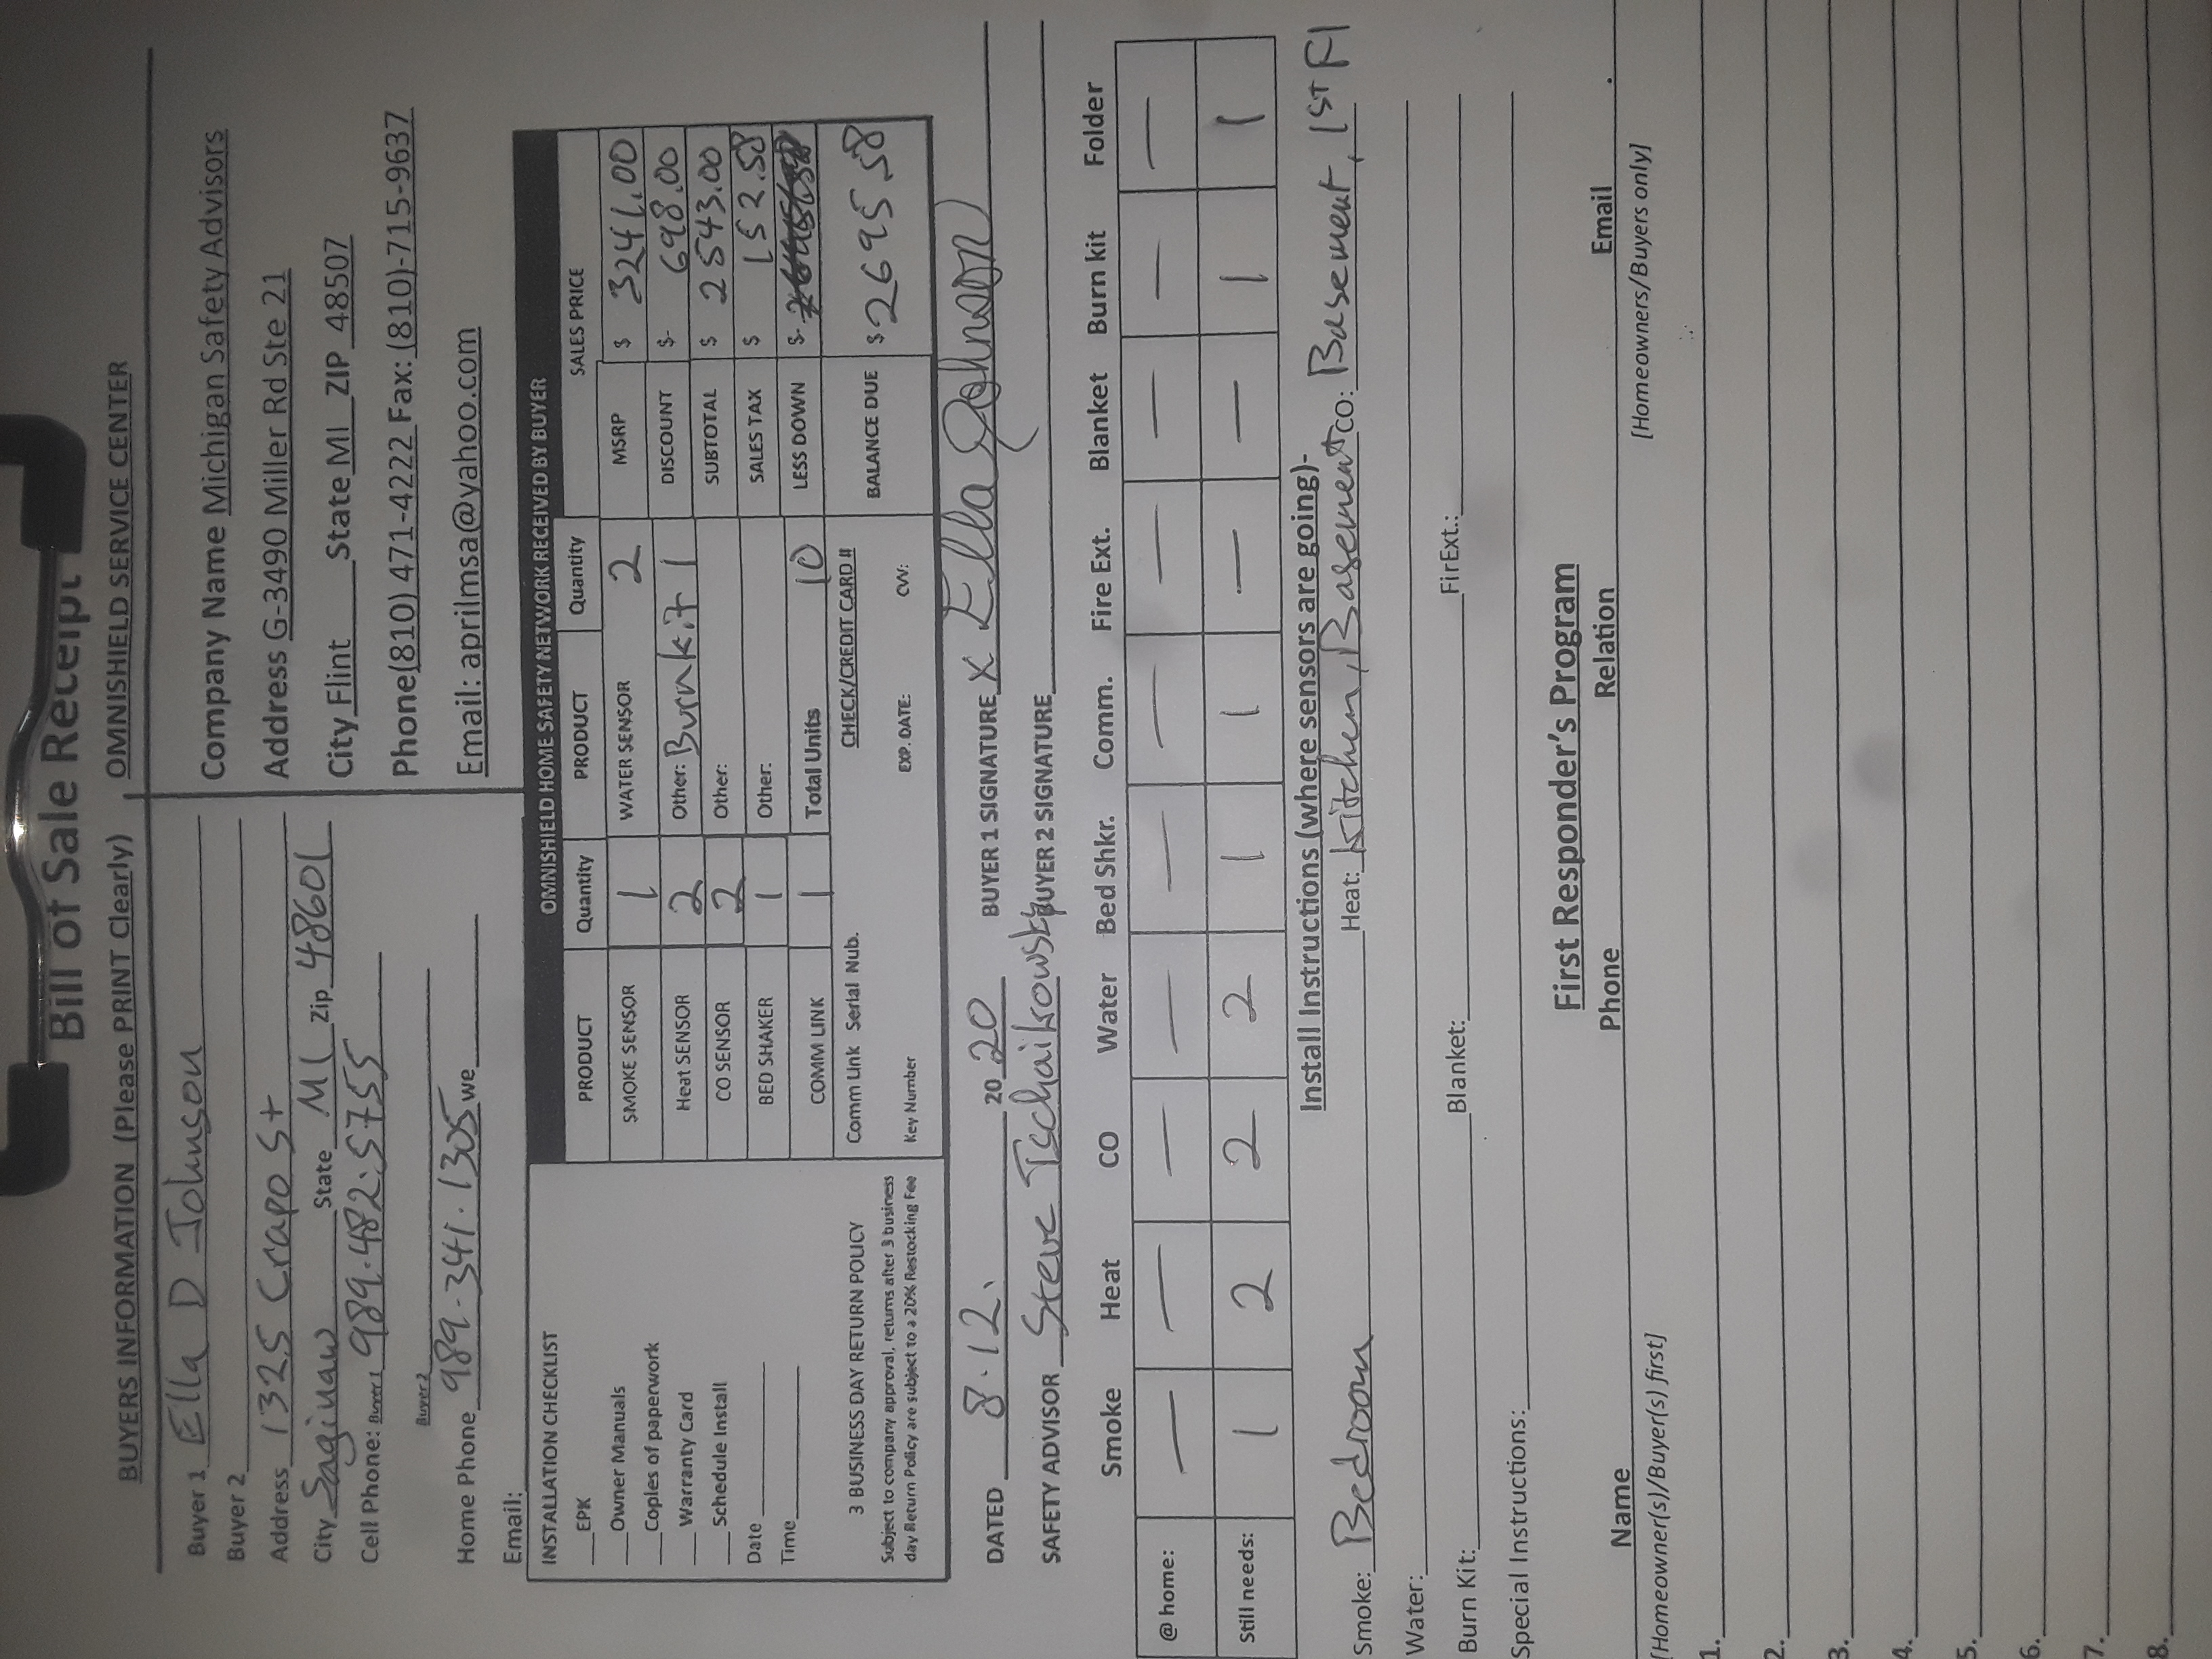 Bill of Sale Receipt
BUYERS INFORMATION (Please PRINT Clearly)
Buyer 1 Ella D Johnson
Buyer 2
Address 1325 Crapo St
City Saginaw State MI Zip 48601
Cell Phone: Buyer 1 989-482-5755
Buyer 2
Home Phone 989-341-1305 we
Email:
OMNISHIELD SERVICE CENTER
Company Name Michigan Safety Advisors
Address G-3490 Miller Rd Ste 21
City Flint State MI ZIP 48507
Phone (810) 471-4222 Fax: (810)-715-9637
Email: aprilmsa@yahoo.com
INSTALLATION CHECKLIST
EPK
Owner Manuals
Copies of paperwork
Warranty Card
Schedule Install
Date
Time
3 BUSINESS DAY RETURN POLICY
Subject to company approval, returns after 3 business
day Return Policy are subject to a 20% Restocking Fee
OMNISHIELD HOME SAFETY NETWORK RECEIVED BY BUYER
PRODUCT Quantity PRODUCT Quantity SALES PRICE
SMOKE SENSOR 1 WATER SENSOR 2 MSRP $ 3241.00
Heat SENSOR 2 Other: Burnkit 1 DISCOUNT $- 698.00
CO SENSOR 2 Other: SUBTOTAL $ 2543.00
BED SHAKER 1 Other: SALES TAX $ 152.58
COMM LINK 1 Total Units 10 LESS DOWN $-
Comm Link Serial Nub. CHECK/CREDIT CARD # BALANCE DUE $ 2695.58
Key Number EXP. DATE: CVV:
DATED 8.12. 20 20 BUYER 1 SIGNATURE x Ella Johnson
SAFETY ADVISOR Steve Tschaikowsky BUYER 2 SIGNATURE
Smoke Heat CO Water Bed Shkr. Comm. Fire Ext. Blanket Burn kit Folder
@ home: — — — — — — — — — —
Still needs: 1 2 2 2 1 1 — — 1 1
Install Instructions (where sensors are going)-
Smoke: Bedroom Heat: Kitchen, Basement CO: Basement, 1ST Fl
Water:
Burn Kit: Blanket: FirExt.:
Special Instructions:
First Responder's Program
Name Phone Relation Email
[Homeowner(s)/Buyer(s) first] [Homeowners/Buyers only]
1.
2.
3.
4.
5.
6.
7.
8.